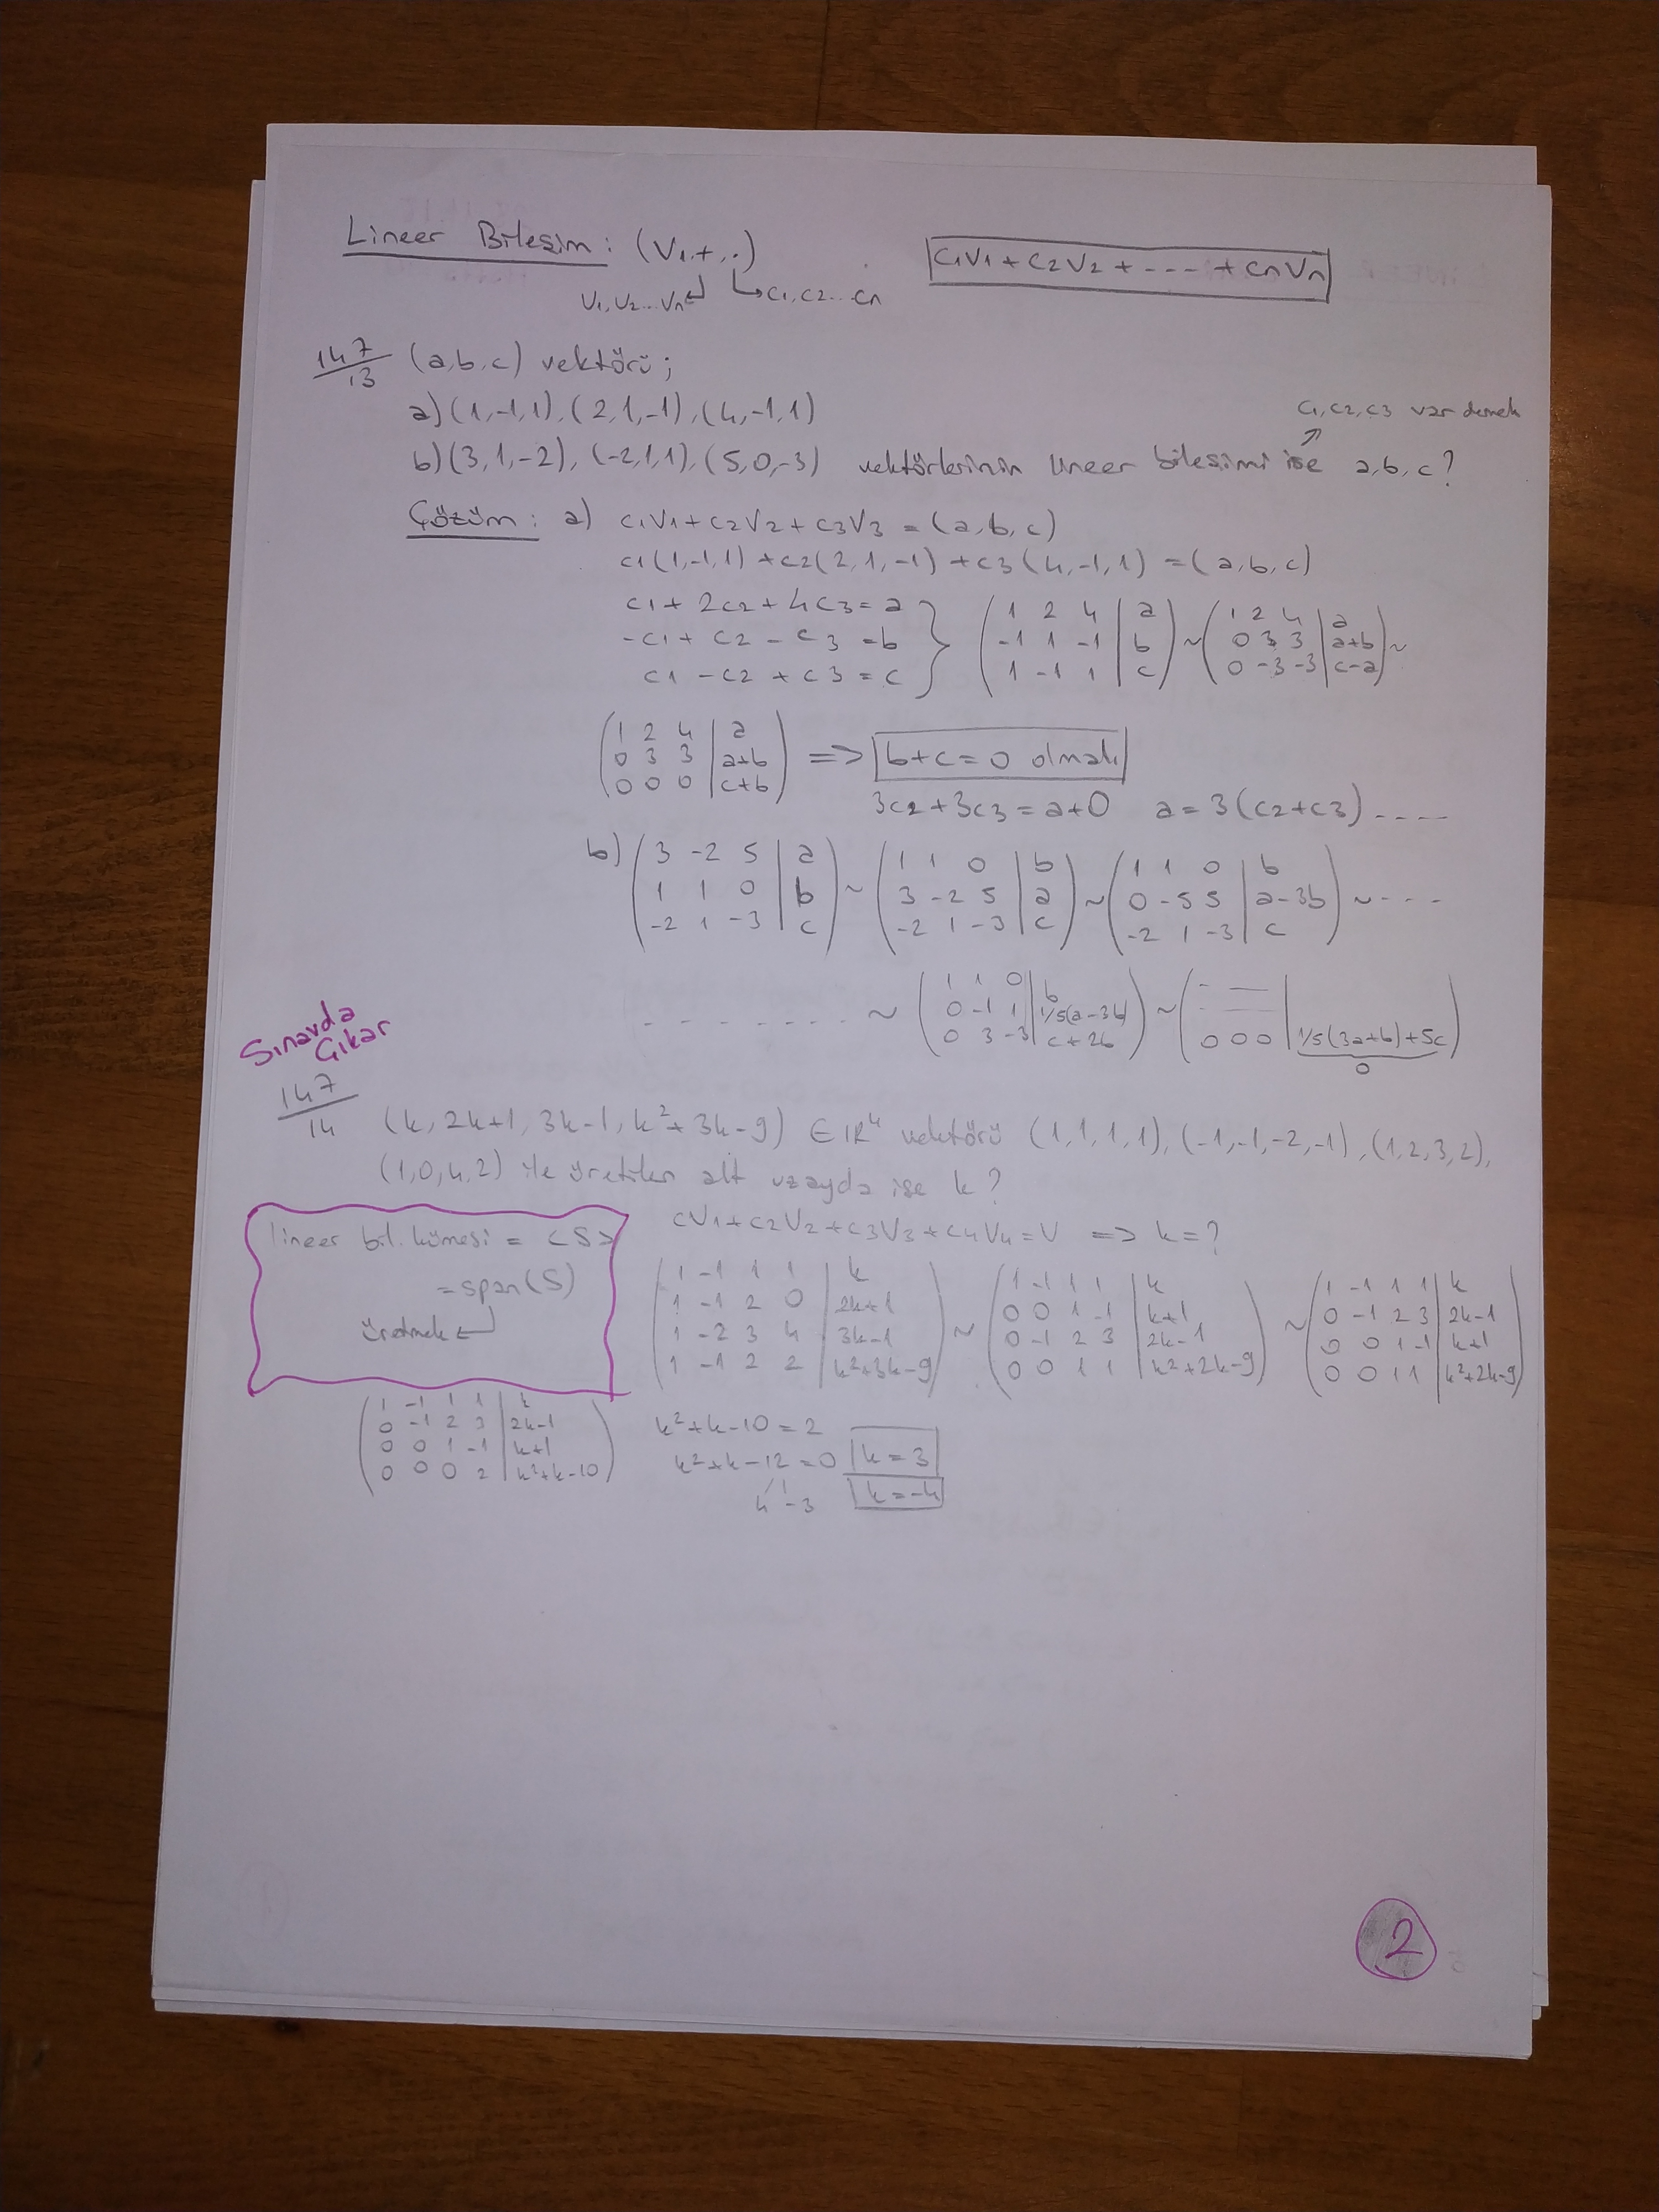 Lineer Bileşim : (V, +, ·)
c1V1 + c2V2 + ---- + cnVn
V1, V2 ... Vn c1, c2 ... cn
147/13 (a,b,c) vektörü;
a) (1,-1,1), (2,1,-1), (4,-1,1)
c1, c2, c3 var demek
b) (3,1,-2), (-2,1,1), (5,0,-3) vektörlerinin lineer bileşimi ise a,b,c?
Çözüm : a) c1V1 + c2V2 + c3V3 = (a,b,c)
c1(1,-1,1) + c2(2,1,-1) + c3(4,-1,1) = (a,b,c)
c1 + 2c2 + 4c3 = a
-c1 + c2 - c3 = b
c1 - c2 + c3 = c
( 1 2 4 | a ) ~ ( 1 2 4 | a ) ~
( -1 1 -1 | b ) ( 0 3 3 | a+b )
( 1 -1 1 | c ) ( 0 -3 -3 | c-a )
( 1 2 4 | a )
( 0 3 3 | a+b )
( 0 0 0 | c+b )
=> b+c = 0 olmalı
3c2 + 3c3 = a+0 a = 3(c2+c3) ----
b) ( 3 -2 5 | a ) ~ ( 1 1 0 | b ) ~ ( 1 1 0 | b ) ~ ----
( 1 1 0 | b ) ( 3 -2 5 | a ) ( 0 -5 5 | a-3b )
( -2 1 -3 | c ) ( -2 1 -3 | c ) ( -2 1 -3 | c )
------- ~ ( 1 1 0 | b ) ~
( 0 -1 1 | 1/5(a-3b) )
( 0 3 -3 | c+2b ) ( 0 0 0 | 1/5(3a+b)+5c )
0
Sınavda
Çıkar
147/14 (k, 2k+1, 3k-1, k²+3k-9) ∈ IR⁴ vektörü (1,1,1,1), (-1,-1,-2,-1), (1,2,3,2),
(1,0,4,2) ile üretilen alt uzayda ise k?
cV1 + c2V2 + c3V3 + c4V4 = V => k = ?
lineer bil. kümesi = <S>
= span(S)
Üretmek
( 1 -1 1 1 | k ) ~ ( 1 -1 1 1 | k ) ~ ( 1 -1 1 1 | k )
( 1 -1 2 0 | 2k+1 ) ( 0 0 1 -1 | k+1 ) ( 0 -1 2 3 | 2k-1 )
( 1 -2 3 4 | 3k-1 ) ( 0 -1 2 3 | 2k-1 ) ( 0 0 1 -1 | k+1 )
( 1 -1 2 2 | k²+3k-9 ) ( 0 0 1 1 | k²+2k-9 ) ( 0 0 1 1 | k²+2k-9 )
( 1 -1 1 1 | k )
( 0 -1 2 3 | 2k-1 )
( 0 0 1 -1 | k+1 )
( 0 0 0 2 | k²+k-10 )
k²+k-10 = 2
k²+k-12 = 0 k = 3
4 -3 k = -4
2